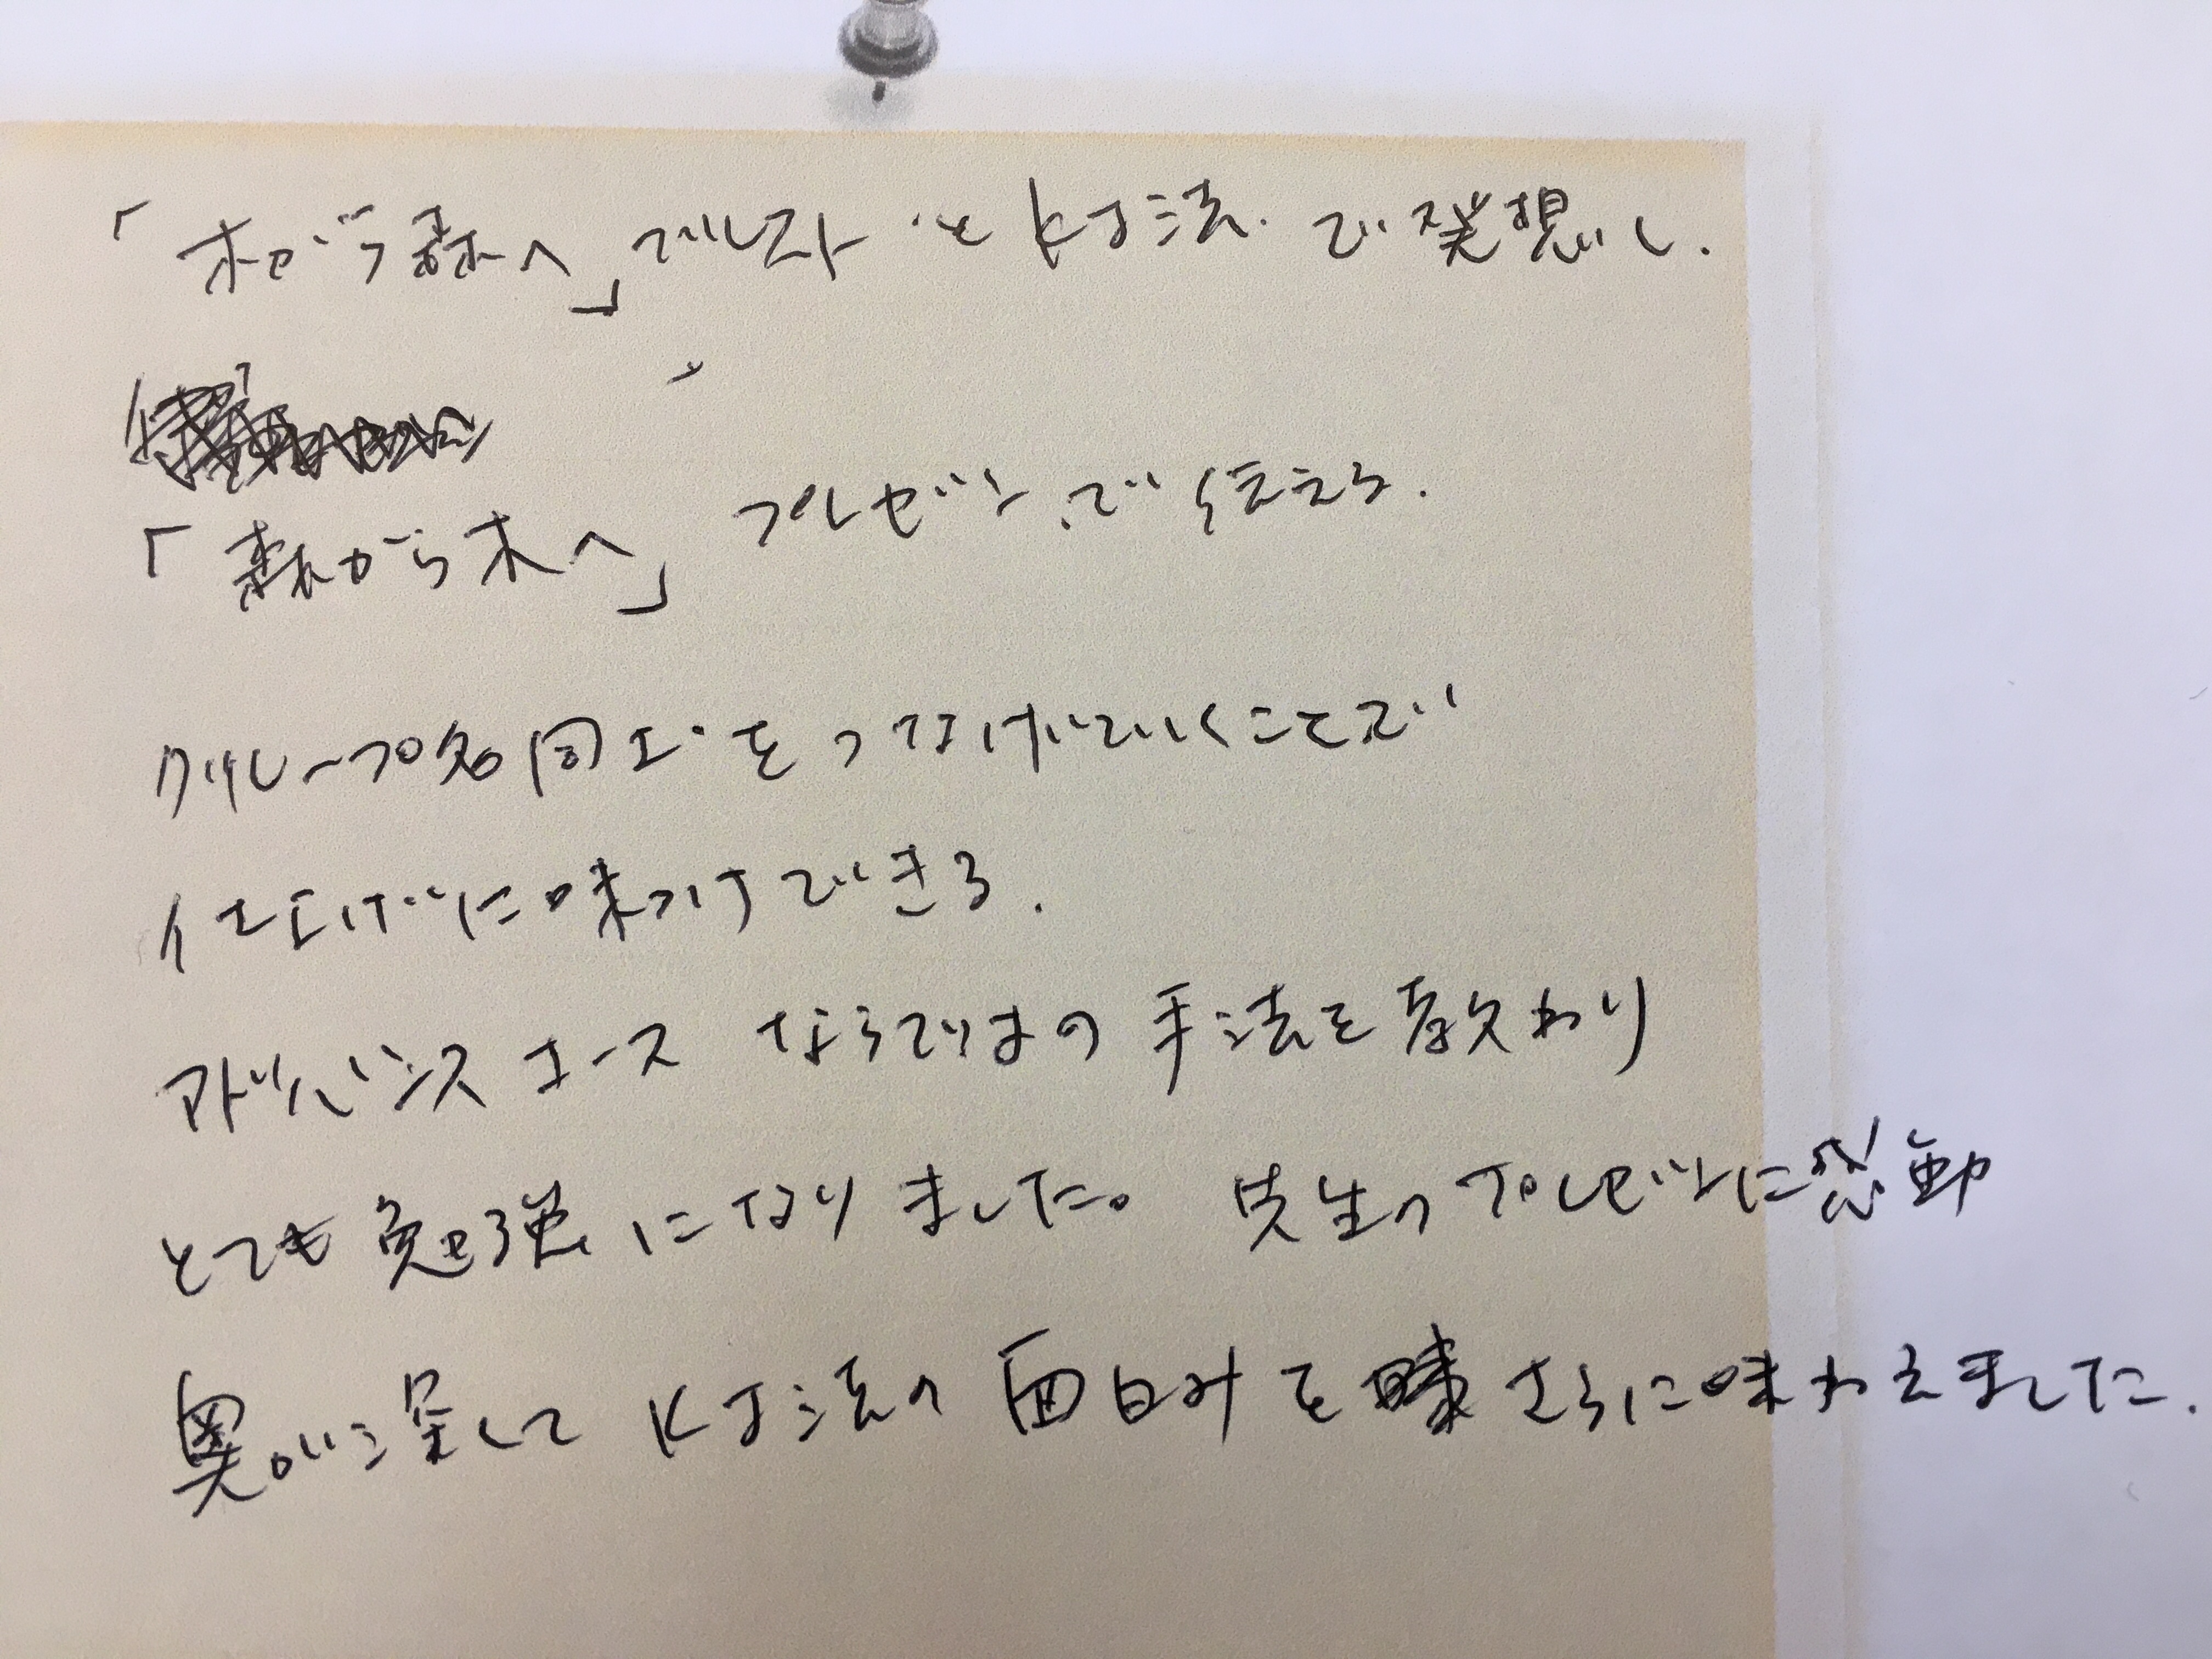 「木から森へ」ブレストとKJ法で発想し.
「森から木へ」プレゼンで伝える.
グループ名同士をつなげていくことで
イモヅルに味つけできる.
アドバンスコースならではの手法を教わり
とても勉強になりました。先生のプレゼンに感動
奥が深くてKJ法の面白みをさらに味わえました.